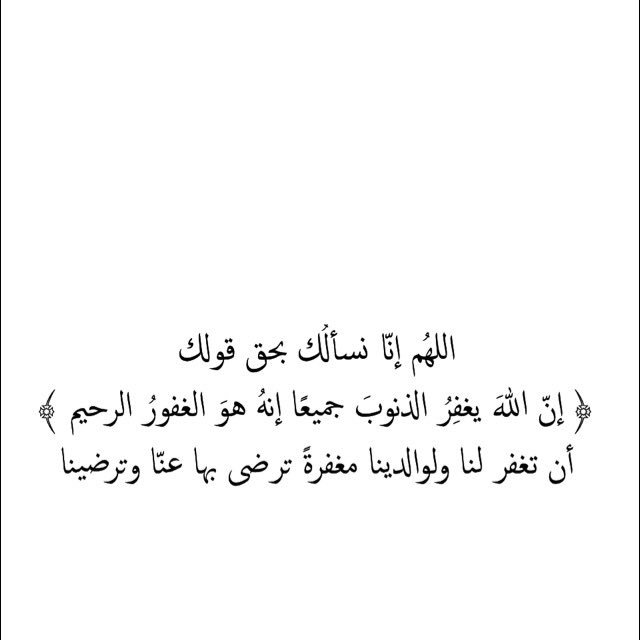 اللهُم إنّا نسألُك بحق قولك
﴿ إنّ اللهَ يغفِرُ الذنوبَ جميعًا إنهُ هوَ الغفورُ الرحيم ﴾
أن تغفر لنا ولوالدينا مغفرةً ترضى بها عنّا وترضينا